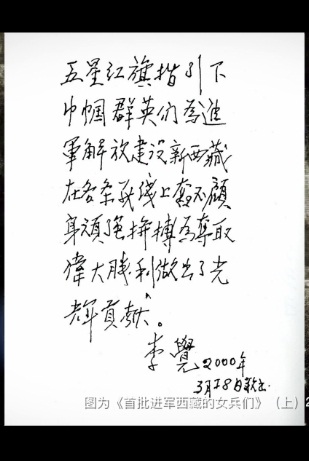 五星红旗指引下
巾帼群英们為進
軍解放建设新西藏
在各条战线上奋不顧
身頑强拚搏為奪取
偉大勝利做出了光
辉貢献。
李覺
2000年
3月18日
图为《首批进军西藏的女兵们》（上）